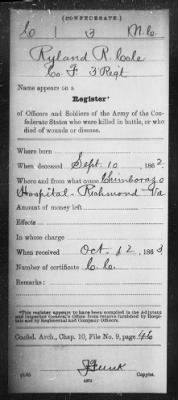 (CONFEDERATE.)
C 3 N.C.
Ryland R. Cole
Co. F 3 Regt
Name appears on a
Register*
of Officers and Soldiers of the Army of the Confederate States who were killed in battle, or who died of wounds or disease.
Where born
When deceased Sept. 10, 1862.
Where and from what cause Chimborazo
Hospital - Richmond Va
Amount of money left
Effects
In whose charge
When received Oct. 12, 1863
Number of certificate
Remarks:
*This register appears to have been compiled in the Adjutant and Inspector General's Office from returns furnished by Hospitals and by Regimental and Company Officers.
Confed. Arch., Chap. 10, File No. 9, page 46
Copyist.